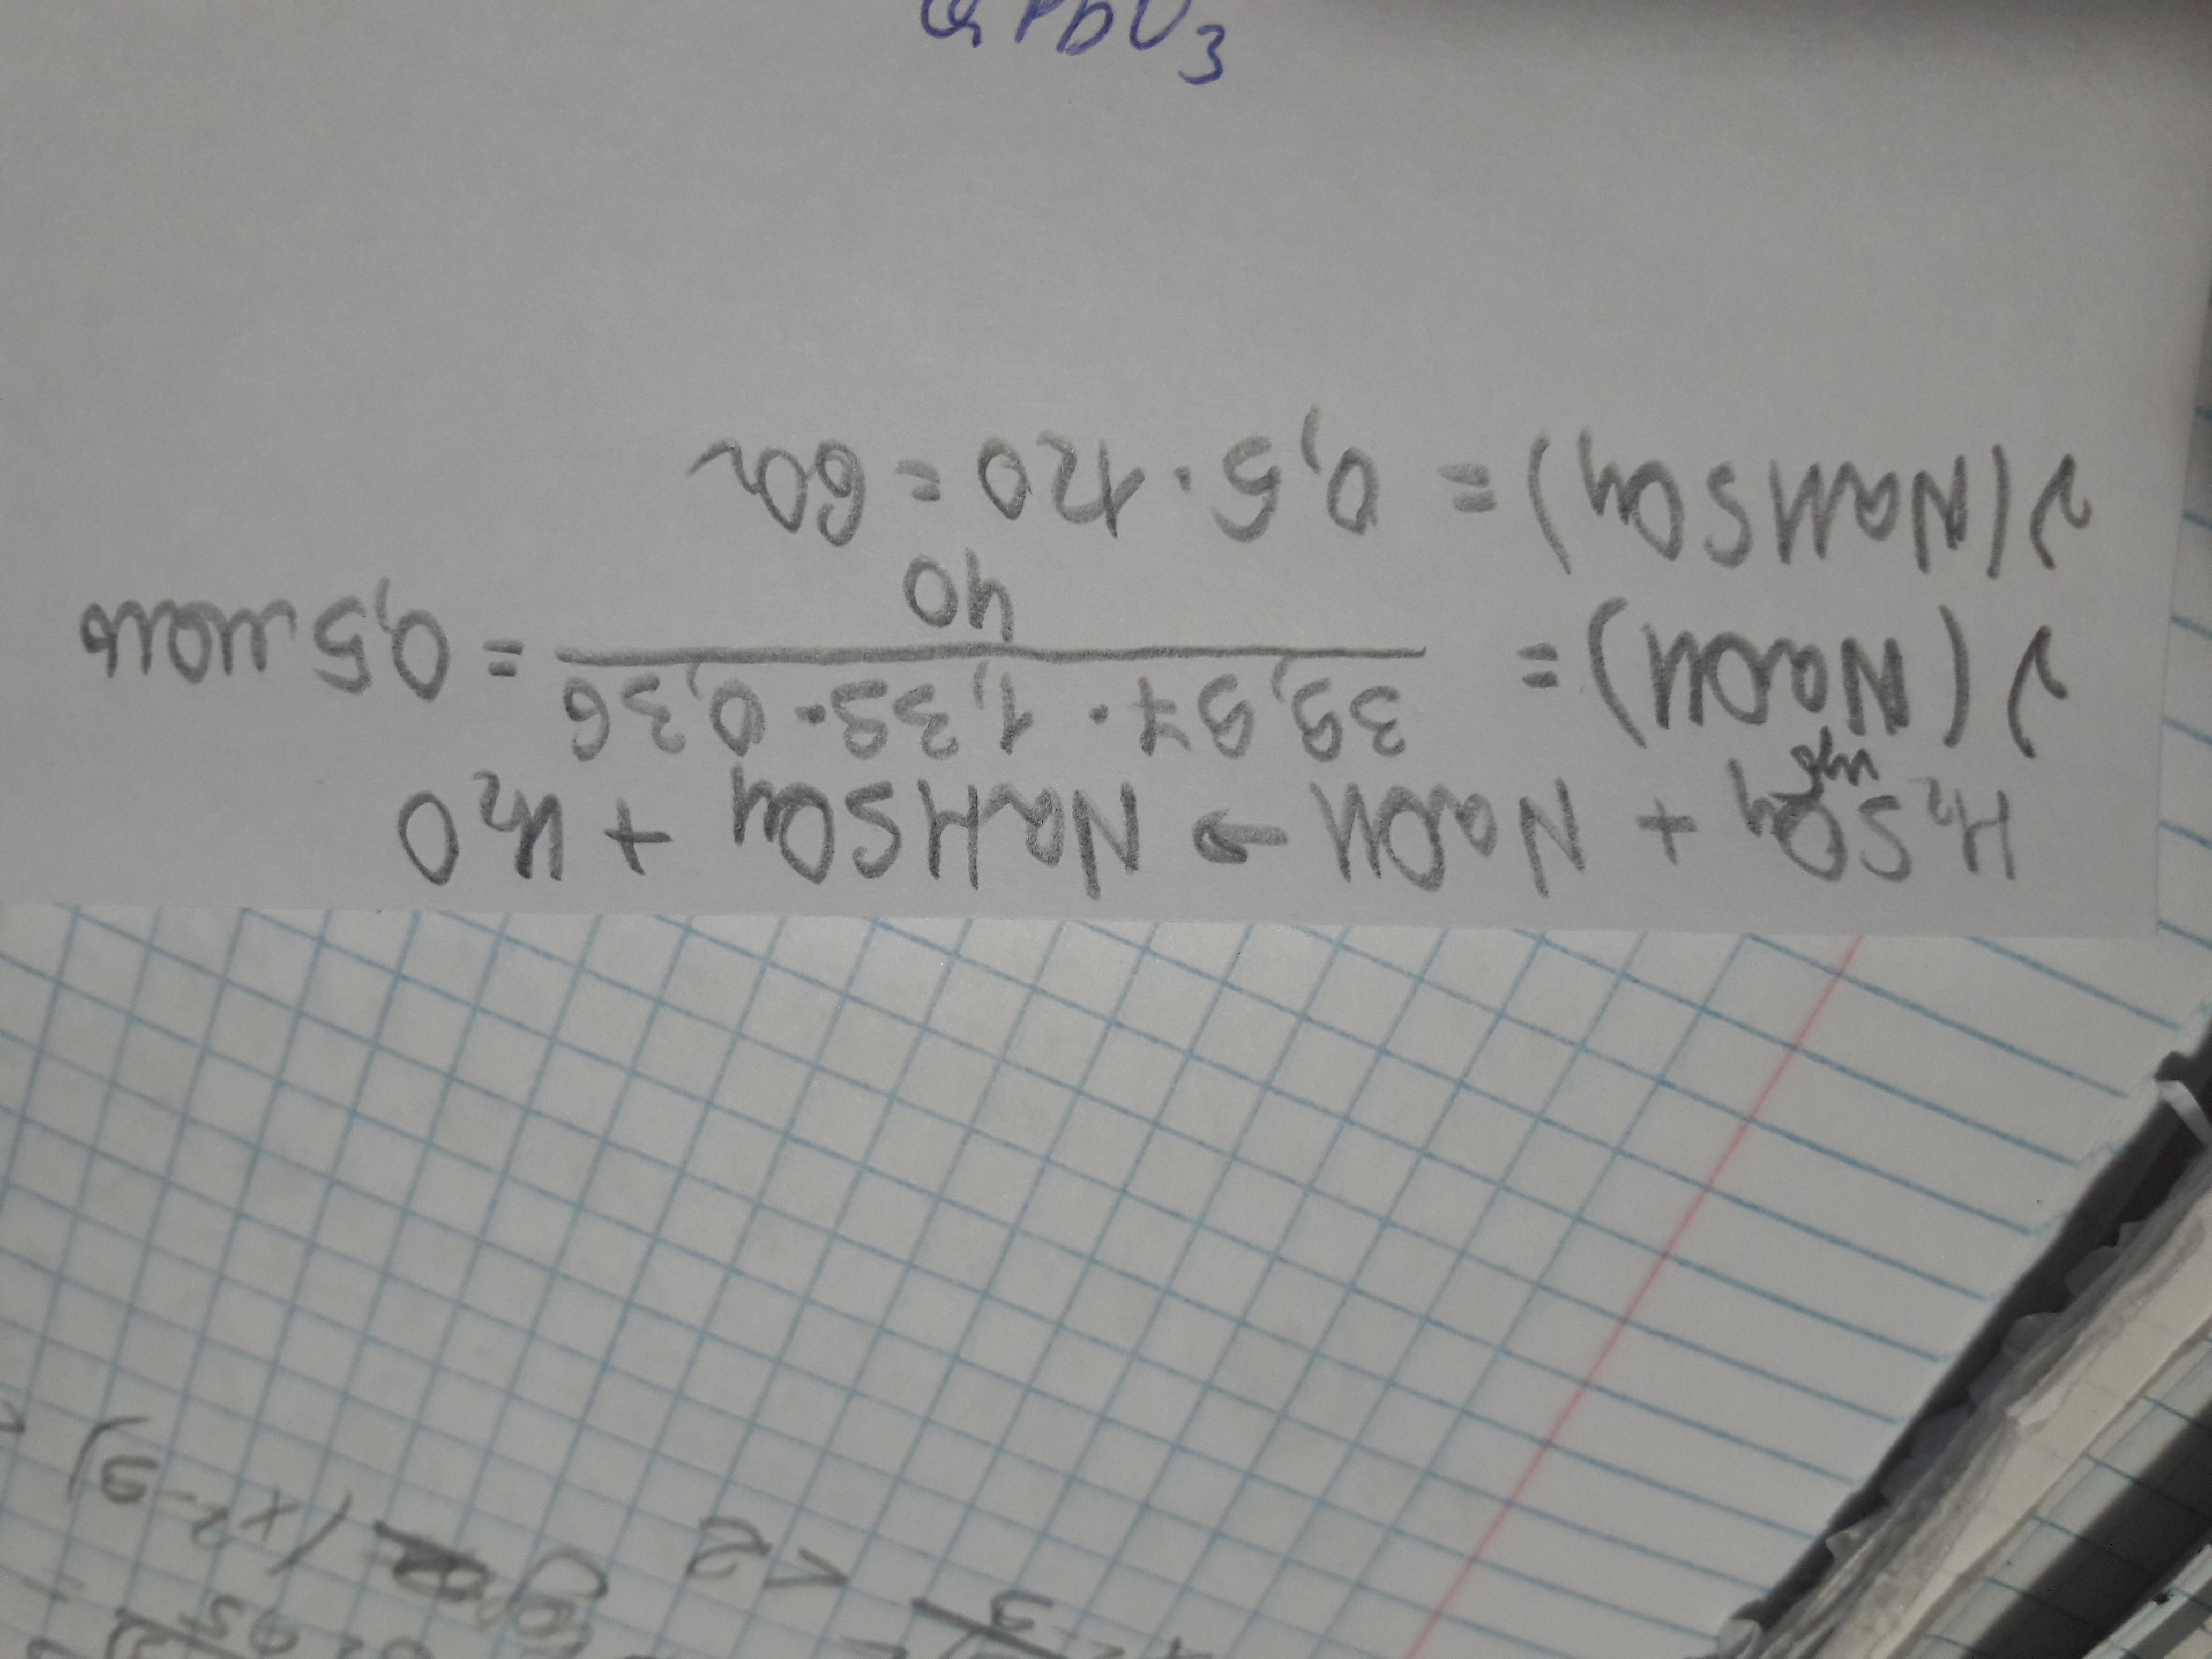 H₂SO₄ + NaOH → NaHSO₄ + H₂O
изб
ν(NaOH) = 39,97 · 1,39 · 0,36 / 40 = 0,5 моль
ν(NaHSO₄) = 0,5 · 120 = 60г
PbO₃
< 2
(x-9)